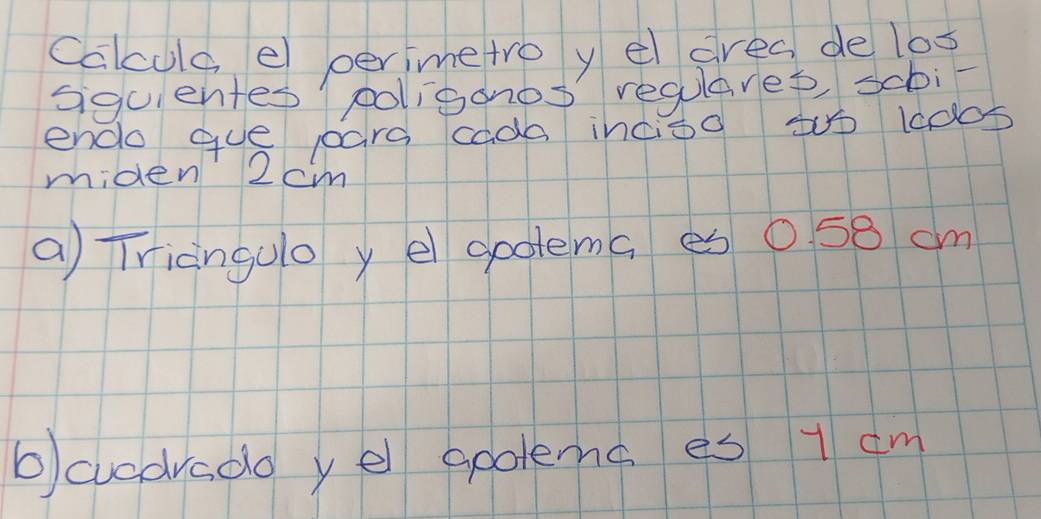 Cálcula el perimetro y el área de los
siguientes poligonos regulares, sabi-
endo que para cada inciso sus lados
miden 2 cm
a) Triángulo y el apotema es 0.58 cm
b) cuadrado y el apotema es 1 cm